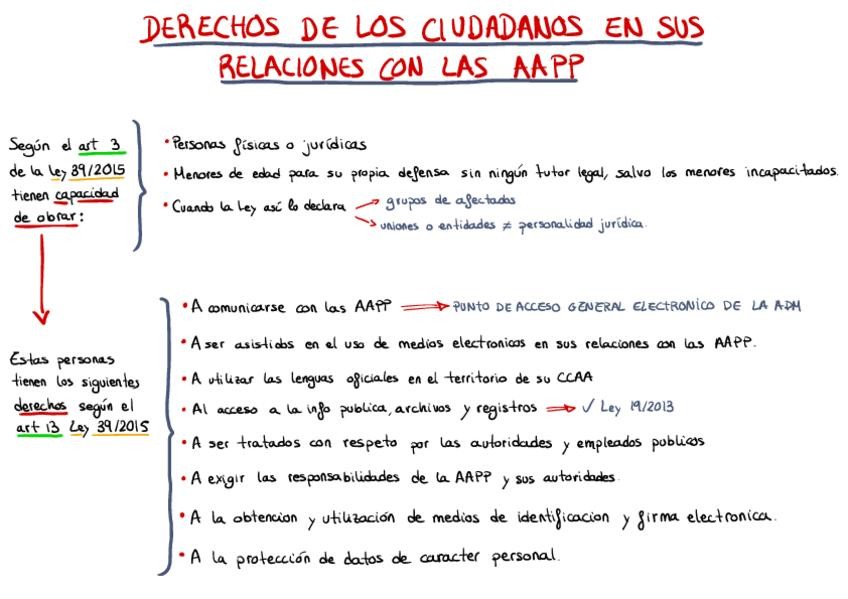 DERECHOS DE LOS CIUDADANOS EN SUS
RELACIONES CON LAS AAPP
Según el art 3
de la Ley 39/2015
tienen capacidad
de obrar:
• Personas físicas o jurídicas
• Menores de edad para su propia defensa sin ningún tutor legal, salvo los menores incapacitados.
• Cuando la Ley así lo declara → grupos de afectados
→ uniones o entidades ≠ personalidad jurídica.
Estas personas
tienen los siguientes
derechos según el
art 13 Ley 39/2015
• A comunicarse con las AAPP → PUNTO DE ACCESO GENERAL ELECTRONICO DE LA ADM
• A ser asistidos en el uso de medios electronicos en sus relaciones con las AAPP.
• A utilizar las lenguas oficiales en el territorio de su CCAA
• Al acceso a la info publica, archivos y registros → √ Ley 19/2013
• A ser tratados con respeto por las autoridades y empleados publicos
• A exigir las responsabilidades de la AAPP y sus autoridades.
• A la obtencion y utilización de medios de identificacion y firma electronica.
• A la protección de datos de caracter personal.